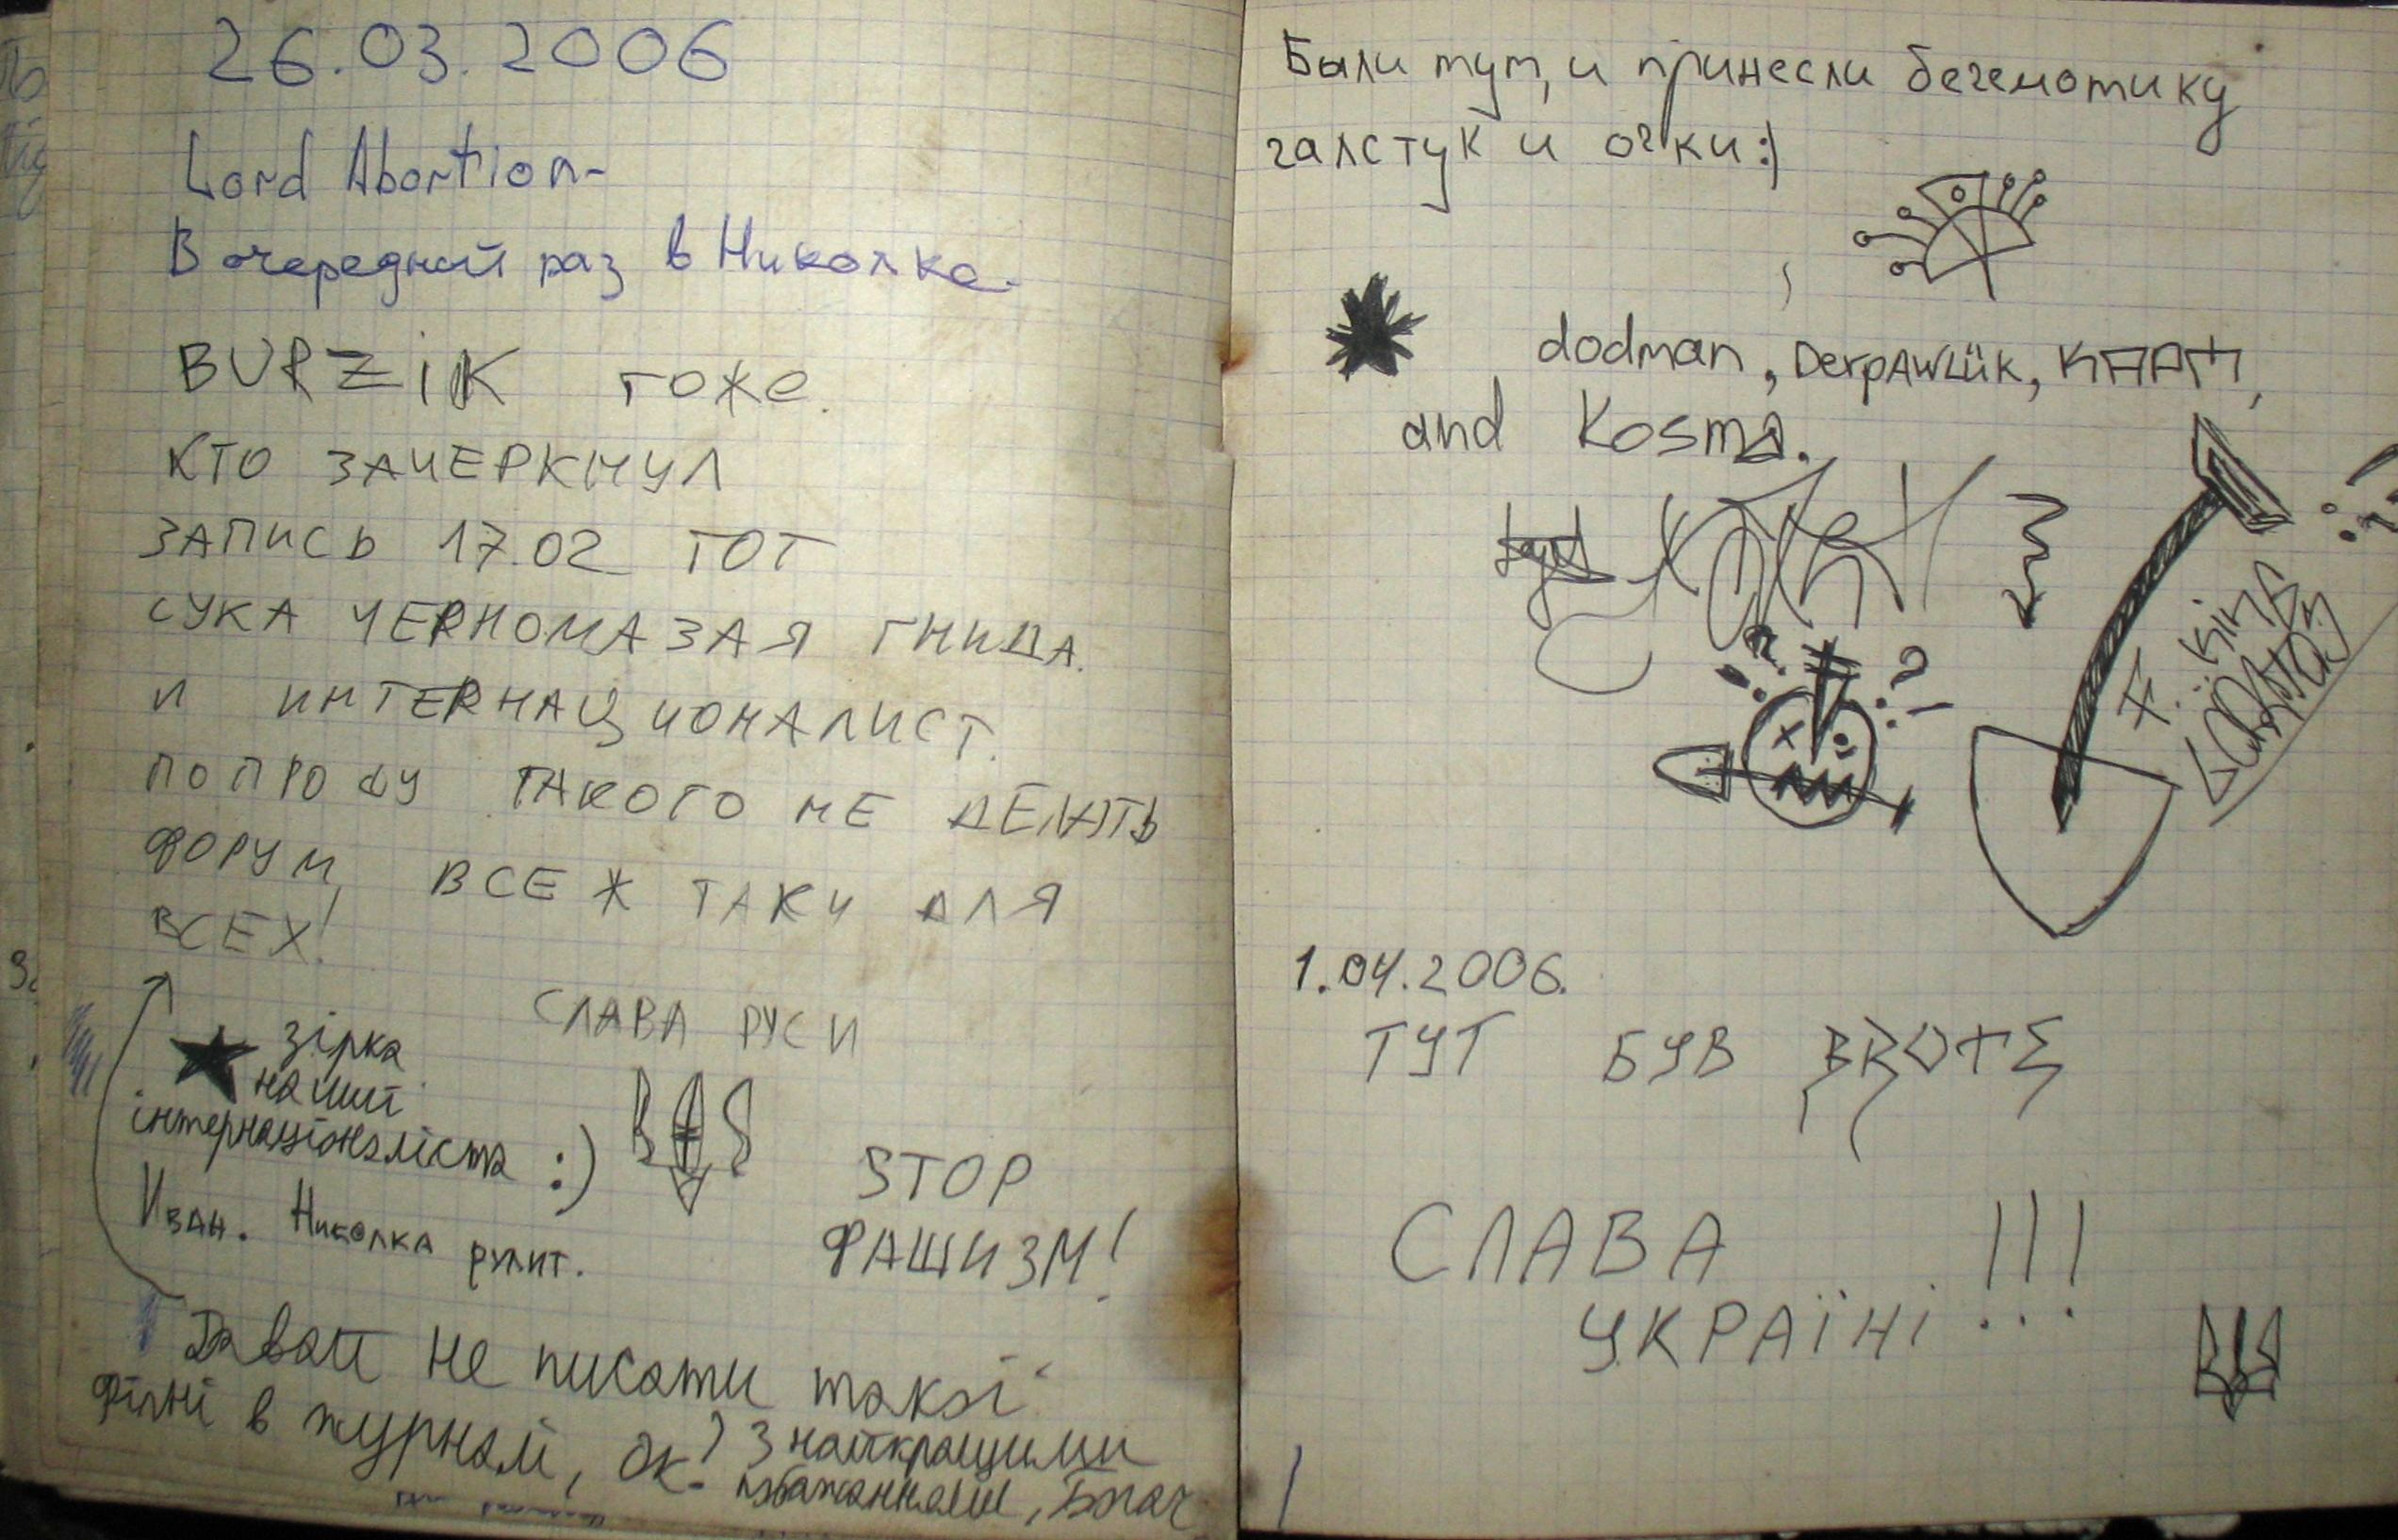 26.03.2006
Lord Abortion-
В очередной раз в Николке.
BURZiK тоже.
КТО ЗАЧЕРКНУЛ
ЗАПИСЬ 17.02 ТОТ
СУКА ЧЕRНОМАЗАЯ ГНИДА.
И ИНТЕRНАЦИОНАЛИСТ.
ПОПРОШУ ТАКОГО НЕ ДЕЛАТЬ
ФОРУМ, ВСЕ Ж ТАКИ ДЛЯ
ВСЕХ!
СЛАВА РУСИ
зірка
наший
інтернаціоналіста :)
STOP
ФАШИЗМ!
Иван. Николка рулит.
Давай не писати такої
фігні в журнал, ок? З найкращими
побажаннями,
Были тут, и принесли бегемотику
галстук и очки:)
dodman, DerpAWLüK,
and Kosma.
1.04.2006.
ТУТ БУВ
СЛАВА
УКРАЇНІ!!!